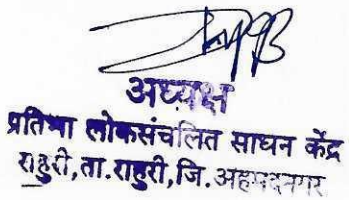 अध्यक्ष
प्रतिभा लोकसंचलित साधन केंद्र
राहुरी, ता. राहुरी, जि. अहमदनगर